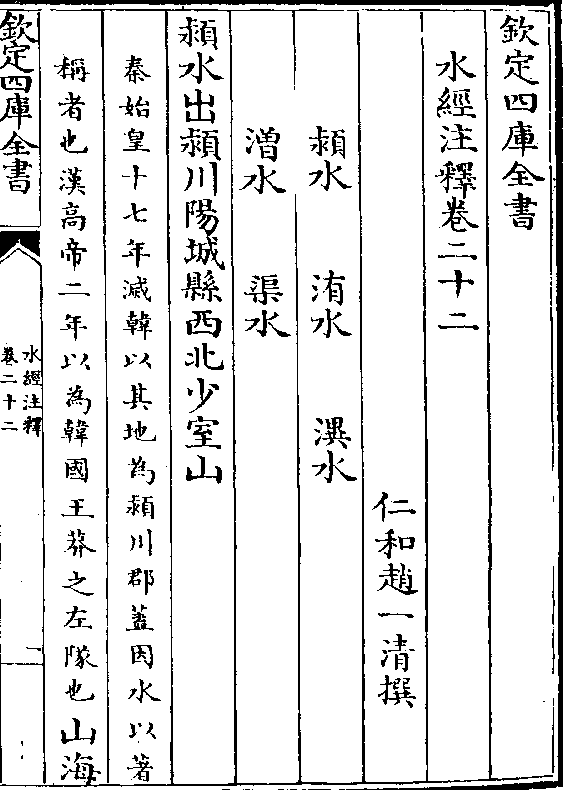 欽定四庫全書
水經注釋卷二十二
仁和趙一清撰
潁水 洧水 潩水
潧水 渠水
潁水出潁川陽城縣西北少室山
秦始皇十七年滅韓以其地為潁川郡蓋因水以著
稱者也漢高帝二年以為韓國王莽之左隊也山海
欽定四庫全書
水經注釋
卷二十二
一